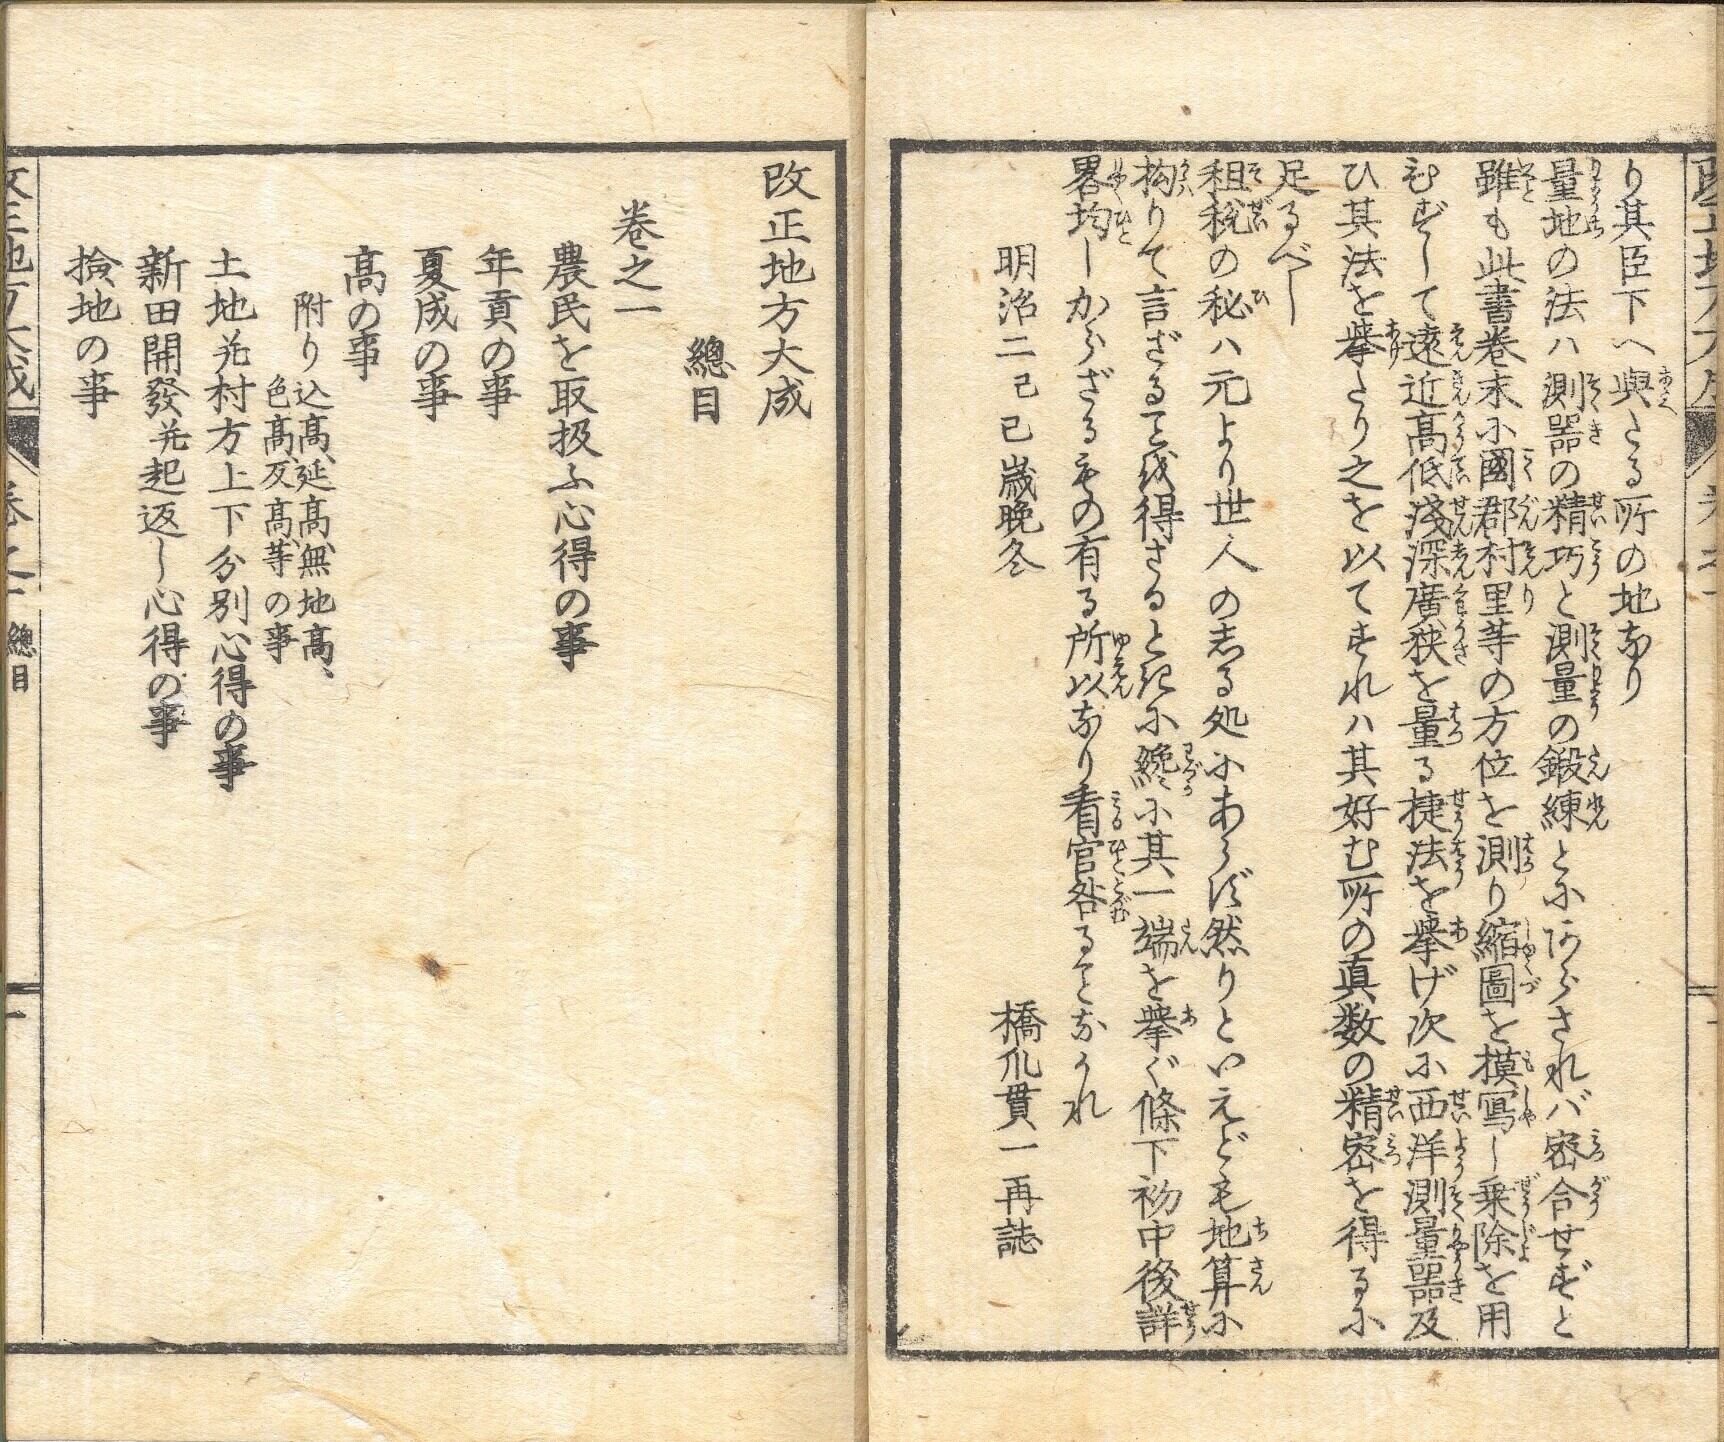 り其臣下へ與たる所の地なり
量地の法ハ測器の精巧と測量の鍛練とにあらされバ密合せずと
雖も此書卷末に國郡村里等の方位を測り縮圖を摸寫し乗除を用
むずして遠近高低淺深廣狹を量る捷法を擧げ次に西洋測量器及
ひ其法を擧たり之を以てすれハ其好む所の真数の精密を得るに
足るべし
租税の秘ハ元より世人の志る処にあらず然りといえども地算に
拘りて言ざるを得さるときに纔に其一端を擧ぐ條下初中後詳
畧均しからざるもの有る所以なり看官咎ることなかれ
明治二己巳歳晩冬
橋爪貫一再誌
改正地方大成
總目
卷之一
農民を取扱ふ心得の事
年貢の事
夏成の事
高の事
附り込高、延高、無地高、
色高、反高、等の事
土地并村方上下分別心得の事
新田開發并起返し心得の事
撿地の事
改正地方大成
卷之一
總目
一